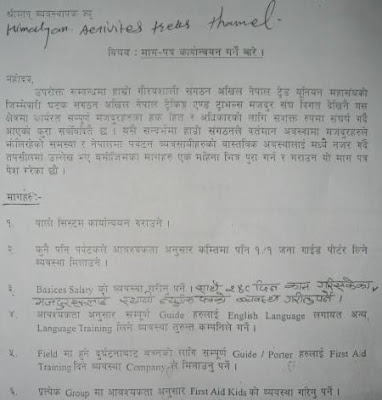 श्रीमान् व्यवस्थापक ज्यू
Himalyan Activites treks thamel.
विषय : माग-पत्र कार्यान्वयन गर्ने बारे ।
महोदय,
उपरोक्त सम्बन्धमा हाम्रो गौरवशाली संगठन अखिल नेपाल ट्रेड यूनियन महासंघको
जिम्मेवारी घटक संगठन अखिल नेपाल ट्रेकिङ्ग एण्ड ट्राभल्स मजदुर संघ विगत देखिनै यस
क्षेत्रमा कार्यरत सम्पूर्ण मजदुरहरुका हक हित र अधिकारको लागि सशक्त रुपमा संघर्ष गर्दै
आएको कुरा सर्वविदितै छ । यसै सन्दर्भमा हाम्रो संगठनले वर्तमान अवस्थामा मजदुरहरुले
भोगिरहेको समस्या र नेपालमा पर्यटन व्यवसायीहरुको वास्तविक अवस्थालाई मध्ये नजर गर्दै
तपसीलमा उल्लेख भए बमोजिमका मागहरु एक महिना भित्र पुरा गर्न र गराउन यो माग पत्र
पेश गरेका छौ ।
मागहरु:-
१. पाली सिस्टम कार्यान्वयन गराउने ।
२. कुनै पनि पर्यटकले आवश्यकता अनुसार कम्तिमा पनि १/१ जना गाईड पोर्टर लिने
व्यवस्था मिलाउने ।
३. Basices Salary को व्यवस्था गरीनु पर्ने । साथै २४० दिन काम गरिसकेका
मजदुरहरुलाई स्थायी नियुक्ति पत्रको व्यवस्था गरीनु पर्ने ।
४. आवश्यकता अनुसार सम्पूर्ण Guide हरुलाई English Language लगायत अन्य
Language Training लिने व्यवस्था तुरुन्त कम्पनिले गर्ने ।
५. Field मा हुने दुर्घटनाबाट बच्नको लागि सम्पूर्ण Guide / Porter हरुलाई First Aid
Training दिने व्यवस्था Company ले मिलाउनु पर्ने ।
६. प्रत्येक Group मा आवश्यकता अनुसार First Aid Kids को व्यवस्था गरिनु पर्ने ।